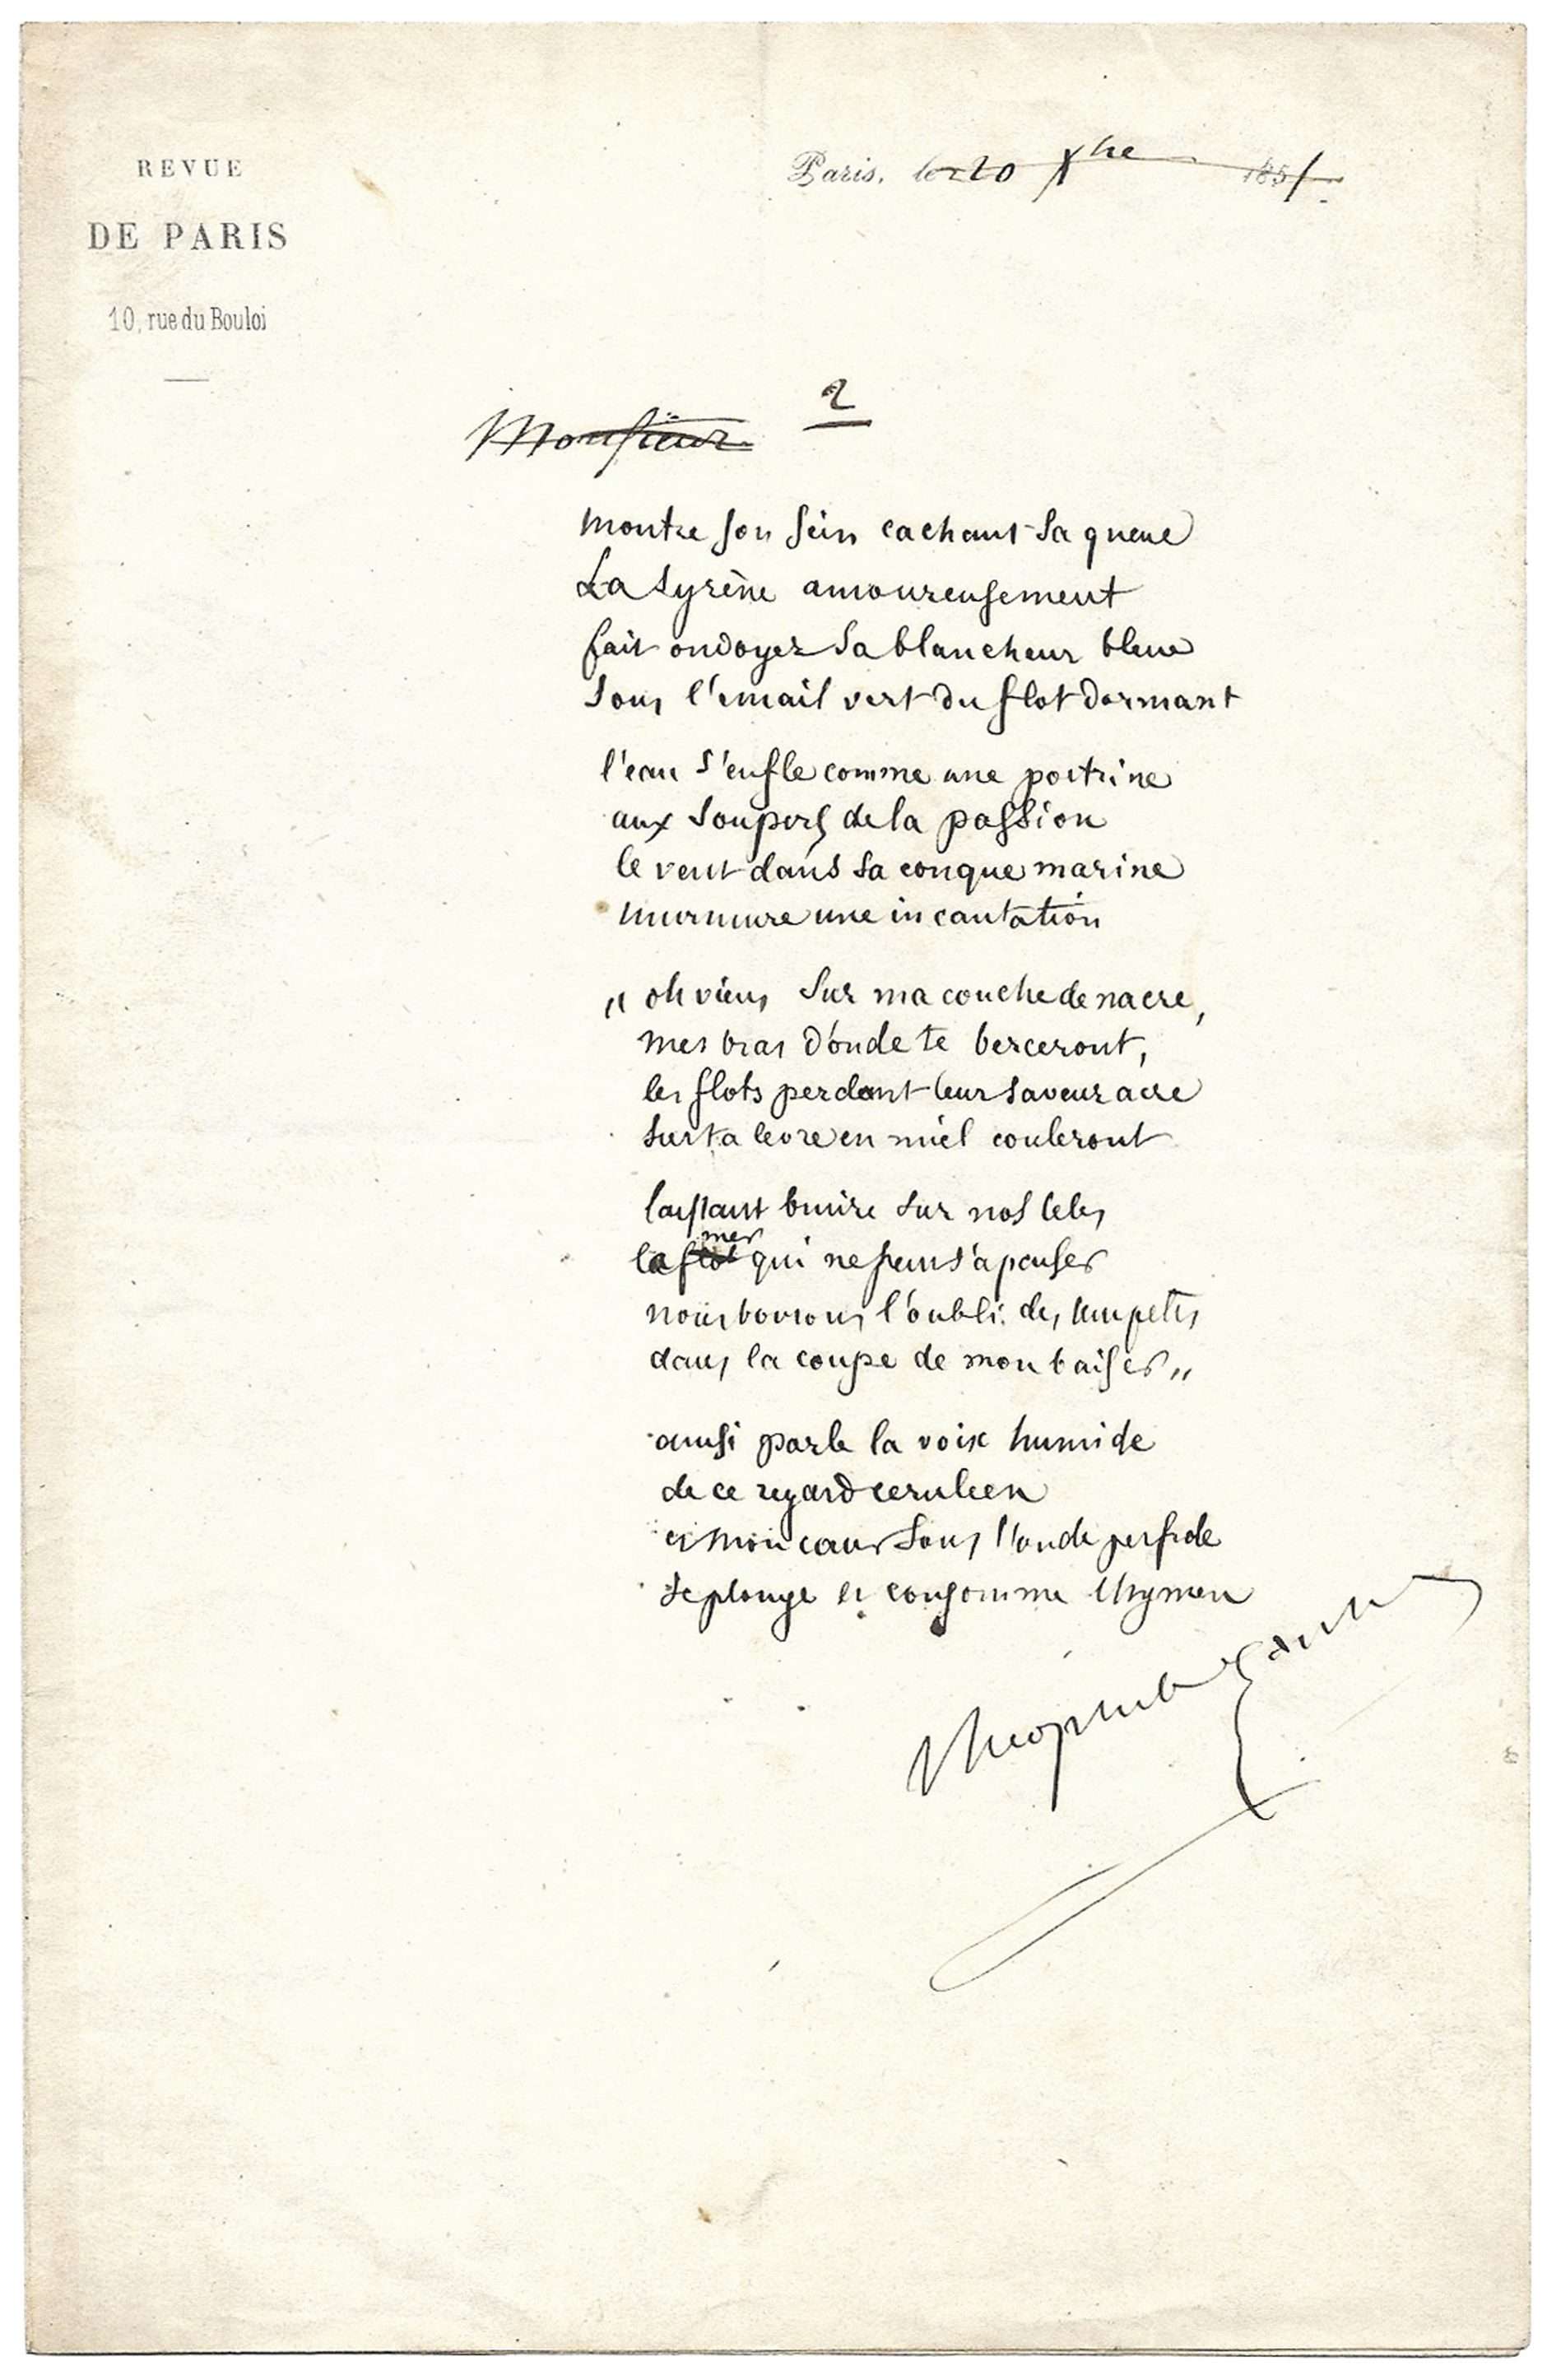 REVUE
DE PARIS
10, rue du Bouloi
Paris, le 20 Xbre 1851
2
Monsieur
montre son sein cachant sa queue
La syrène amoureusement
fait ondoyer sa blancheur bleue
sous l'email vert du flot dormant
l'eau s'enfle comme une poitrine
aux soupers de la passion
le vent dans sa conque marine
murmure une incantation
„ oh viens sur ma couche de nacre,
mes bras d'onde te berceront,
les flots perdant leur saveur acre
sur ta levre en miel couleront
laissant bruire sur nos tetes
la flot mer qui ne peut s'apaiser
nous boirons l'oubli des tempetes
dans la coupe de mon baiser„
ainsi parle la voix humide
de ce regard ceruleen
et mon cœur sous l'onde perfide
se plonge et consomme l'hymen
Theophile Gautier